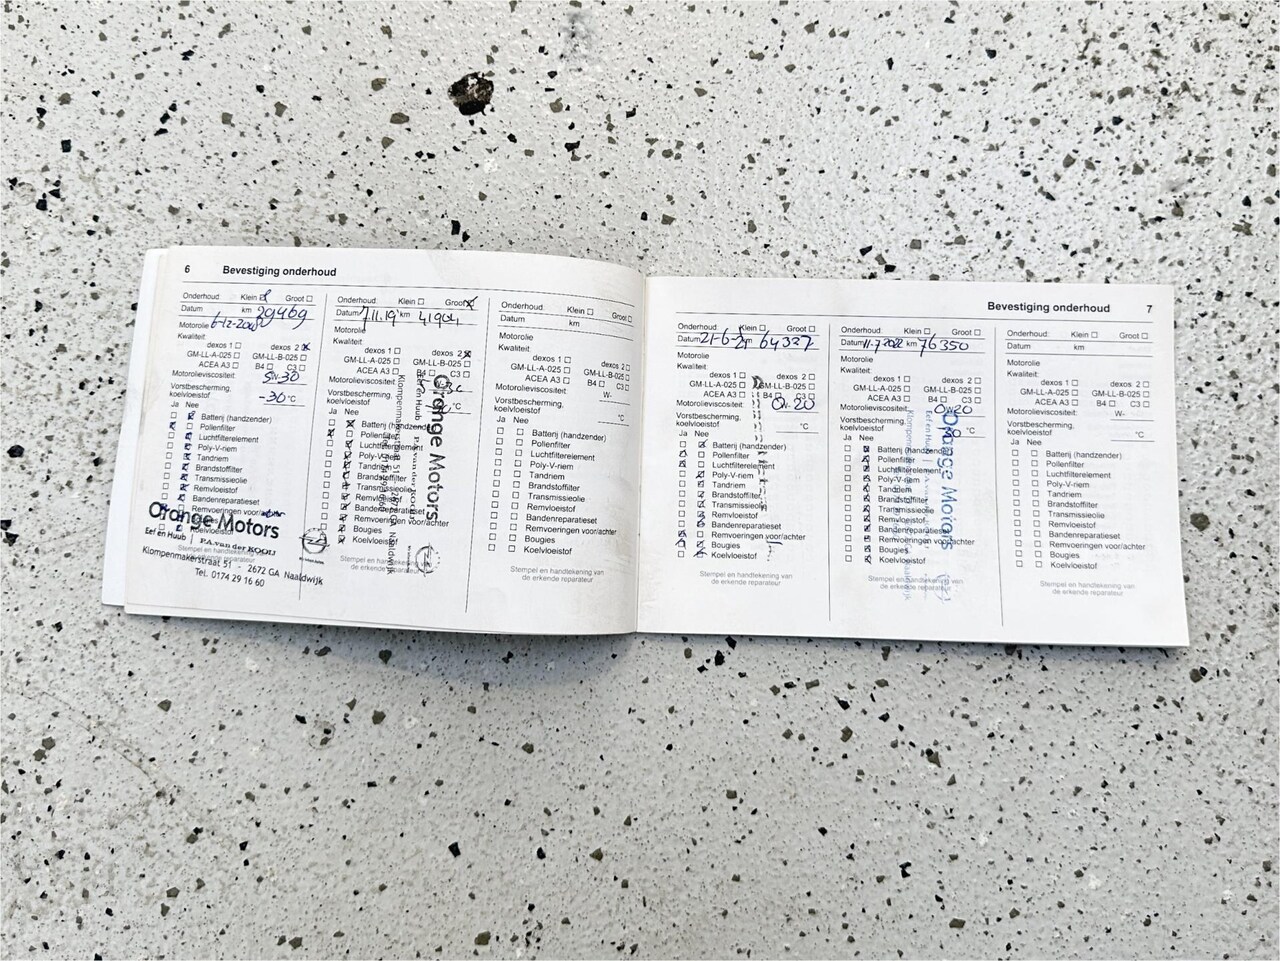 6 Bevestiging onderhoud
Onderhoud: Klein Groot
Datum km 29469
Motorolie
Kwaliteit:
dexos 1 dexos 2
GM-LL-A-025 GM-LL-B-025
ACEA A3 B4 C3
Motorolieviscositeit: 5W-30
Vorstbescherming, koelvloeistof -30 °C
Ja Nee
Batterij (handzender)
Pollenfilter
Luchtfilterelement
Poly-V-riem
Tandriem
Brandstoffilter
Transmissieolie
Remvloeistof
Bandenreparatieset
Remvoeringen voor/achter
Koelvloeistof
Orange Motors
Eef en Huub | P.A. van der KOOIJ
Klompenmakerstraat 51 - 2672 GA Naaldwijk
Tel. 0174 29 16 60
Onderhoud: Klein Groot
Datum 7.11.19 km 41904
Motorolie
Kwaliteit:
dexos 1 dexos 2
GM-LL-A-025 GM-LL-B-025
ACEA A3 B4
Motorolieviscositeit:
Vorstbescherming, koelvloeistof
Ja Nee
Batterij (handzender)
Pollenfilter
Luchtfilterelement
Poly-V-riem
Tandriem
Brandstoffilter
Transmissieolie
Remvloeistof
Bandenreparatieset
Remvoeringen voor/achter
Bougies
Koelvloeistof
Stempel en handtekening van
de erkende reparateur
Orange Motors
Onderhoud: Klein Groot
Datum km
Motorolie
Kwaliteit:
dexos 1 dexos 2
GM-LL-A-025 GM-LL-B-025
ACEA A3 B4 C3
Motorolieviscositeit: W-
Vorstbescherming, koelvloeistof °C
Ja Nee
Batterij (handzender)
Pollenfilter
Luchtfilterelement
Poly-V-riem
Tandriem
Brandstoffilter
Transmissieolie
Remvloeistof
Bandenreparatieset
Remvoeringen voor/achter
Bougies
Koelvloeistof
Stempel en handtekening van
de erkende reparateur
Bevestiging onderhoud 7
Onderhoud: Klein Groot
Datum 21-6-21 km 64327
Motorolie
Kwaliteit:
dexos 1 dexos 2
GM-LL-A-025 GM-LL-B-025
ACEA A3 B4 C3
Motorolieviscositeit: 0W-20
Vorstbescherming, koelvloeistof °C
Ja Nee
Batterij (handzender)
Pollenfilter
Luchtfilterelement
Poly-V-riem
Tandriem
Brandstoffilter
Transmissieolie
Remvloeistof
Bandenreparatieset
Remvoeringen voor/achter
Bougies
Koelvloeistof
Stempel en handtekening van
de erkende reparateur
Onderhoud: Klein Groot
Datum 11-7-2022 km 76350
Motorolie
Kwaliteit:
dexos 1 dexos 2
GM-LL-A-025 GM-LL-B-025
ACEA A3 B4 C3
Motorolieviscositeit: 0W20
Vorstbescherming, koelvloeistof
Ja Nee
Batterij (handzender)
Pollenfilter
Luchtfilterelement
Poly-V-riem
Tandriem
Brandstoffilter
Transmissieolie
Remvloeistof
Bandenreparatieset
Remvoeringen voor/achter
Bougies
Koelvloeistof
Stempel en handtekening van
de erkende reparateur
Orange Motors
Onderhoud: Klein Groot
Datum km
Motorolie
Kwaliteit:
dexos 1 dexos 2
GM-LL-A-025 GM-LL-B-025
ACEA A3 B4 C3
Motorolieviscositeit: W-
Vorstbescherming, koelvloeistof °C
Ja Nee
Batterij (handzender)
Pollenfilter
Luchtfilterelement
Poly-V-riem
Tandriem
Brandstoffilter
Transmissieolie
Remvloeistof
Bandenreparatieset
Remvoeringen voor/achter
Bougies
Koelvloeistof
Stempel en handtekening van
de erkende reparateur